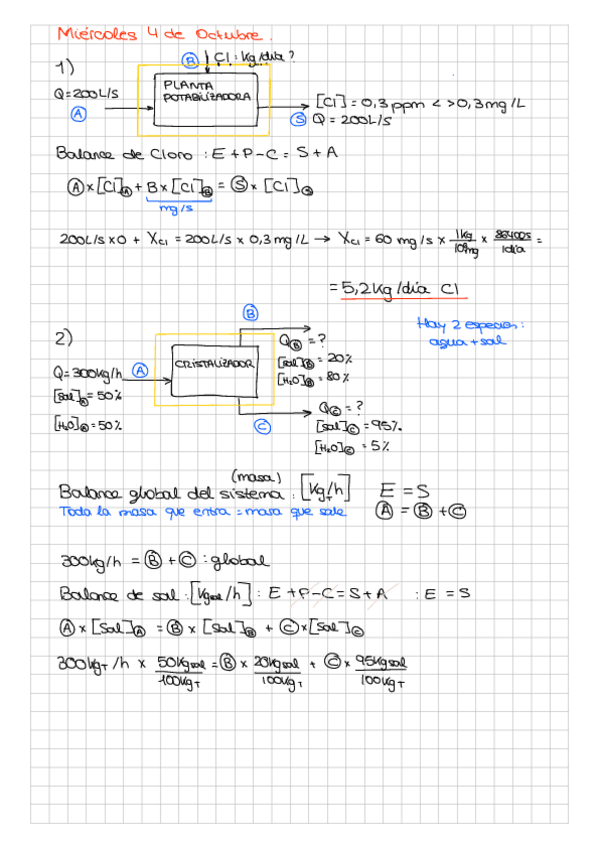 Miércoles 4 de Octubre.
1)
B Cl: kg/día?
Q=200L/s
A
PLANTA
POTABILIZADORA
[Cl] = 0,3 ppm < > 0,3 mg/L
S Q = 200L/s
Balance de Cloro : E + P - C = S + A
A × [Cl]A + B × [Cl]B = S × [Cl]S
mg/s
200L/s × 0 + XCl = 200L/s × 0,3 mg/L → XCl = 60 mg/s × 1kg/10⁶mg × 86400s/1día =
= 5,2 kg/día Cl
2)
B
Hay 2 especies:
agua + sal
Q=300kg/h
A
[sal]A = 50%
[H2O]A = 50%
CRISTALIZADOR
QB = ?
[sal]B = 20%
[H2O]B = 80%
QC = ?
[sal]C = 95%
[H2O]C = 5%
C
(masa)
Balance global del sistema : [kgT/h] E = S
Toda la masa que entra = masa que sale A = B + C
300kg/h = B + C : global
Balance de sal : [kgsal/h] : E + P - C = S + A : E = S
A × [Sal]A = B × [Sal]B + C × [Sal]C
300kgT/h × 50kgsal/100kgT = B × 20kgsal/100kgT + C × 95kgsal/100kgT